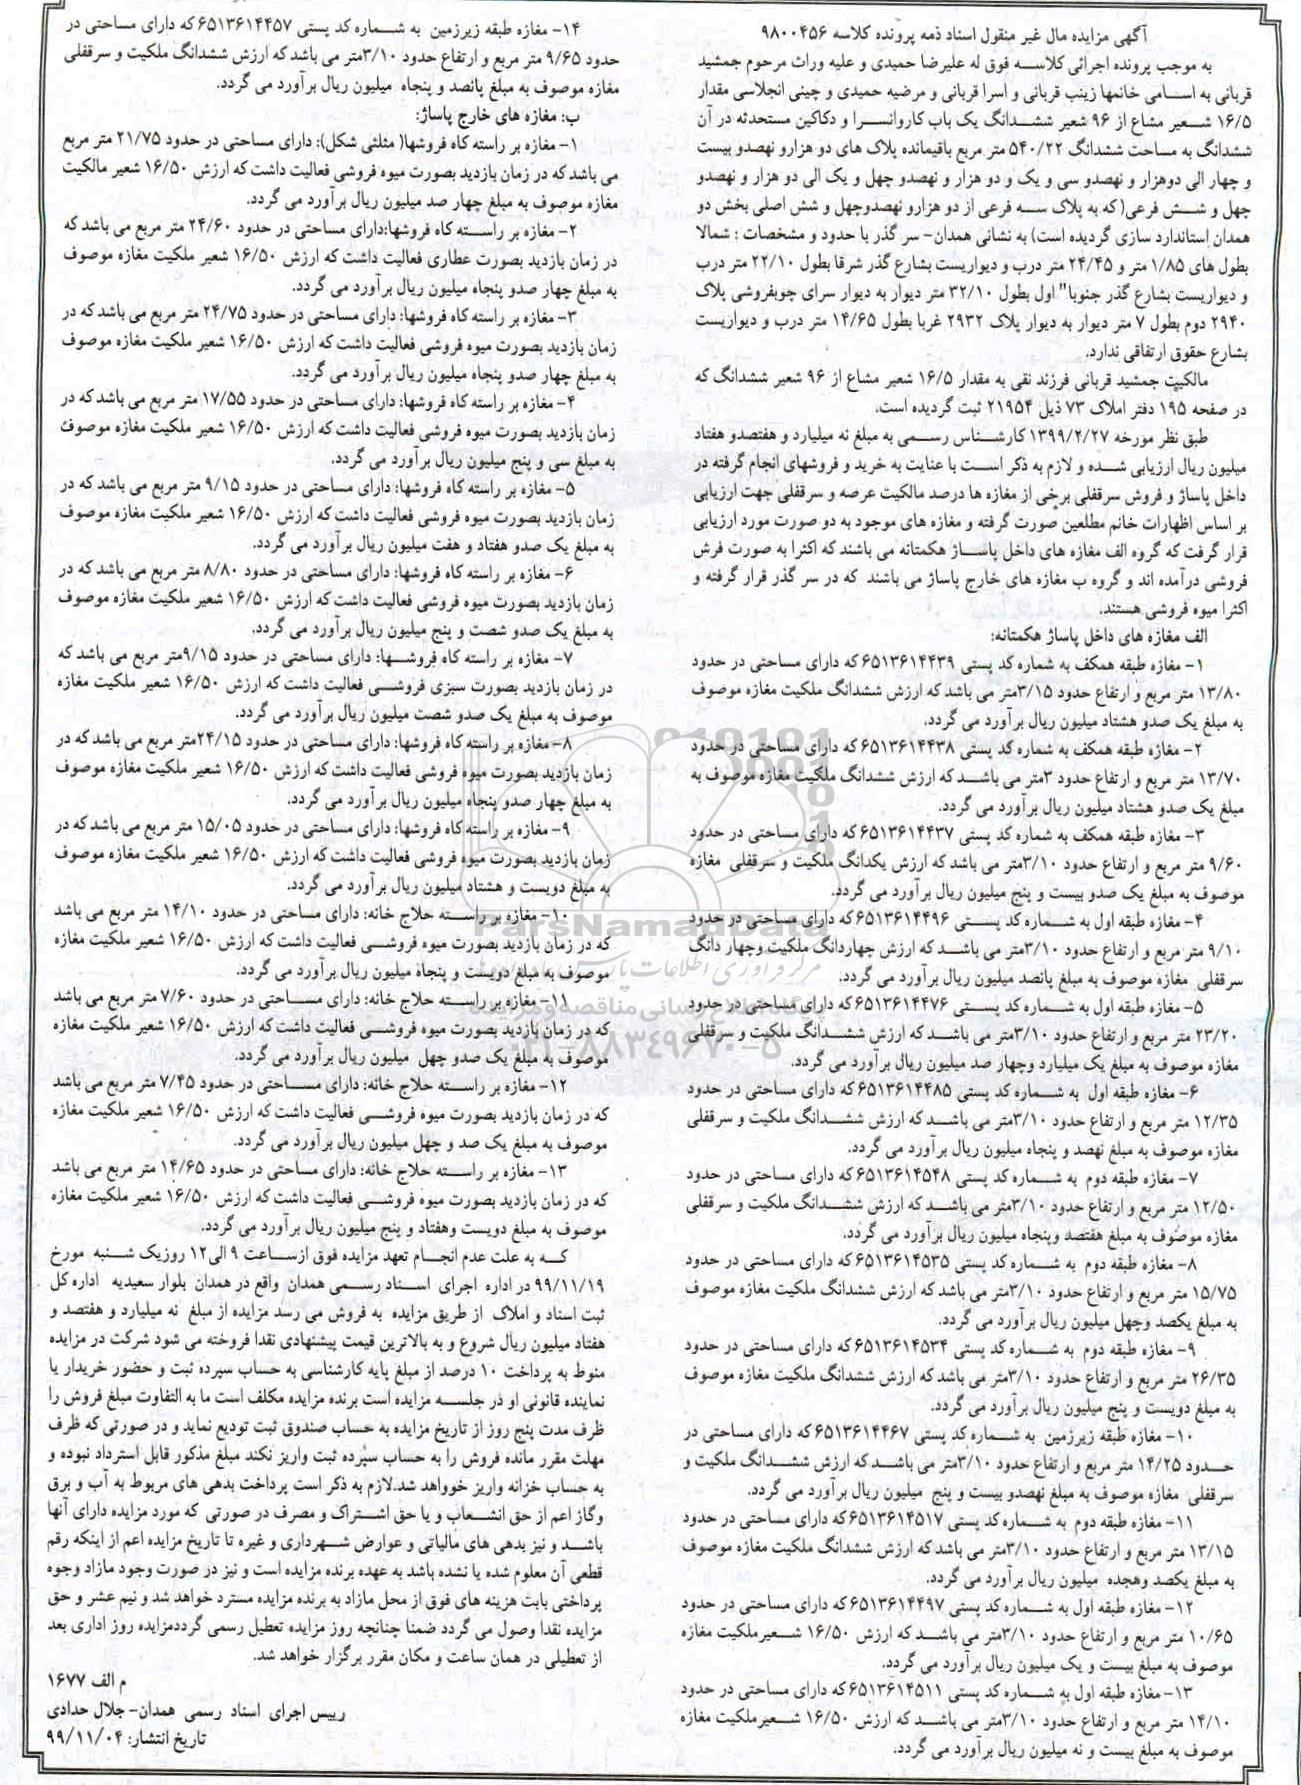 آگهی مزایده مال غیر منقول اسناد ذمه پرونده کلاسه ۹۸۰۰۴۵۶
به موجب پرونده اجرائی کلاسه فوق له علیرضا حمیدی و علیه وراث مرحوم جمشید
قربانی به اسامی خانمها زینب قربانی و اسرا قربانی و مرضیه حمیدی و چینی انجلاسی مقدار
۱۶/۵ شعیر مشاع از ۹۶ شعیر ششدانگ یک باب کاروانسرا و دکاکین مستحدثه در آن
ششدانگ به مساحت ششدانگ ۵۴۰/۲۲ متر مربع باقیمانده پلاک های دو هزارو نهصدو بیست
و چهار الی دوهزار و نهصدو سی و یک و دو هزار و نهصدو چهل و یک الی دو هزار و نهصدو
چهل و شش فرعی(که به پلاک سه فرعی از دو هزارو نهصدوچهل و شش اصلی بخش دو
همدان استاندارد سازی گردیده است) به نشانی همدان- سر گذر با حدود و مشخصات : شمالا
بطول های ۱/۸۵ متر و ۲۴/۴۵ متر درب و دیواریست بشارع گذر شرقا بطول ۲۲/۱۰ متر درب
و دیواریست بشارع گذر جنوبا" اول بطول ۳۲/۱۰ متر دیوار به دیوار سرای چوبفروشی پلاک
۲۹۴۰ دوم بطول ۷ متر دیوار به دیوار پلاک ۲۹۳۲ غربا بطول ۱۴/۶۵ متر درب و دیواریست
بشارع حقوق ارتفاقی ندارد.
مالکیت جمشید قربانی فرزند نقی به مقدار ۱۶/۵ شعیر مشاع از ۹۶ شعیر ششدانگ که
در صفحه ۱۹۵ دفتر املاک ۷۳ ذیل ۲۱۹۵۴ ثبت گردیده است.
طبق نظر مورخه ۱۳۹۹/۲/۲۷ کارشناس رسمی به مبلغ نه میلیارد و هفتصدو هفتاد
میلیون ریال ارزیابی شده و لازم به ذکر است با عنایت به خرید و فروشهای انجام گرفته در
داخل پاساژ و فروش سرقفلی برخی از مغازه ها درصد مالکیت عرصه و سرقفلی جهت ارزیابی
بر اساس اظهارات خانم مطلعین صورت گرفته و مغازه های موجود به دو صورت مورد ارزیابی
قرار گرفت که گروه الف مغازه های داخل پاساژ هکمتانه می باشند که اکثرا به صورت فرش
فروشی درآمده اند و گروه ب مغازه های خارج پاساژ می باشند که در سر گذر قرار گرفته و
اکثرا میوه فروشی هستند.
الف مغازه های داخل پاساژ هکمتانه:
۱- مغازه طبقه همکف به شماره کد پستی ۶۵۱۳۶۱۴۴۳۹ که دارای مساحتی در حدود
۱۳/۸۰ متر مربع و ارتفاع حدود ۳/۱۵متر می باشد که ارزش ششدانگ ملکیت مغازه موصوف
به مبلغ یک صدو هشتاد میلیون ریال برآورد می گردد.
۲- مغازه طبقه همکف به شماره کد پستی ۶۵۱۳۶۱۴۴۳۸ که دارای مساحتی در حدود
۱۳/۷۰ متر مربع و ارتفاع حدود ۳متر می باشد که ارزش ششدانگ ملکیت مغازه موصوف به
مبلغ یک صدو هشتاد میلیون ریال برآورد می گردد.
۳- مغازه طبقه همکف به شماره کد پستی ۶۵۱۳۶۱۴۴۳۷ که دارای مساحتی در حدود
۹/۶۰ متر مربع و ارتفاع حدود ۳/۱۰متر می باشد که ارزش یکدانگ ملکیت و سرقفلی مغازه
موصوف به مبلغ یک صدو بیست و پنج میلیون ریال برآورد می گردد.
۴- مغازه طبقه اول به شماره کد پستی ۶۵۱۳۶۱۴۴۹۶ که دارای مساحتی در حدود
۹/۱۰ متر مربع و ارتفاع حدود ۳/۱۰متر می باشد که ارزش چهاردانگ ملکیت وچهار دانگ
سرقفلی مغازه موصوف به مبلغ پانصد میلیون ریال برآورد می گردد.
۵- مغازه طبقه اول به شماره کد پستی ۶۵۱۳۶۱۴۴۷۶ که دارای مساحتی در حدود
۲۳/۲۰ متر مربع و ارتفاع حدود ۳/۱۰متر می باشد که ارزش ششدانگ ملکیت و سرقفلی
مغازه موصوف به مبلغ یک میلیارد وچهار صد میلیون ریال برآورد می گردد.
۶- مغازه طبقه اول به شماره کد پستی ۶۵۱۳۶۱۴۴۸۵ که دارای مساحتی در حدود
۱۲/۳۵ متر مربع و ارتفاع حدود ۳/۱۰متر می باشد که ارزش ششدانگ ملکیت و سرقفلی
مغازه موصوف به مبلغ نهصد و پنجاه میلیون ریال برآورد می گردد.
۷- مغازه طبقه دوم به شماره کد پستی ۶۵۱۳۶۱۴۵۴۸ که دارای مساحتی در حدود
۱۲/۵۰ متر مربع و ارتفاع حدود ۳/۱۰متر می باشد که ارزش ششدانگ ملکیت و سرقفلی
مغازه موصوف به مبلغ هفتصد وپنجاه میلیون ریال برآورد می گردد.
۸- مغازه طبقه دوم به شماره کد پستی ۶۵۱۳۶۱۴۵۳۵ که دارای مساحتی در حدود
۱۵/۷۵ متر مربع و ارتفاع حدود ۳/۱۰متر می باشد که ارزش ششدانگ ملکیت مغازه موصوف
به مبلغ یکصد وچهل میلیون ریال برآورد می گردد.
۹- مغازه طبقه دوم به شماره کد پستی ۶۵۱۳۶۱۴۵۳۴ که دارای مساحتی در حدود
۲۶/۳۵ متر مربع و ارتفاع حدود ۳/۱۰متر می باشد که ارزش ششدانگ ملکیت مغازه موصوف
به مبلغ دویست و پنج میلیون ریال برآورد می گردد.
۱۰- مغازه طبقه زیرزمین به شماره کد پستی ۶۵۱۳۶۱۴۴۶۷ که دارای مساحتی در
حدود ۱۴/۲۵ متر مربع و ارتفاع حدود ۳/۱۰متر می باشد که ارزش ششدانگ ملکیت و
سرقفلی مغازه موصوف به مبلغ نهصدو بیست و پنج میلیون ریال برآورد می گردد.
۱۱- مغازه طبقه دوم به شماره کد پستی ۶۵۱۳۶۱۴۵۱۷ که دارای مساحتی در حدود
۱۳/۱۵ متر مربع و ارتفاع حدود ۳/۱۰متر می باشد که ارزش ششدانگ ملکیت مغازه موصوف
به مبلغ یکصد وهجده میلیون ریال برآورد می گردد.
۱۲- مغازه طبقه اول به شماره کد پستی ۶۵۱۳۶۱۴۴۹۷ که دارای مساحتی در حدود
۱۰/۶۵ متر مربع و ارتفاع حدود ۳/۱۰متر می باشد که ارزش ۱۶/۵۰ شعیرملکیت مغازه
موصوف به مبلغ بیست و یک میلیون ریال برآورد می گردد.
۱۳- مغازه طبقه اول به شماره کد پستی ۶۵۱۳۶۱۴۵۱۱ که دارای مساحتی در حدود
۱۴/۱۰ متر مربع و ارتفاع حدود ۳/۱۰متر می باشد که ارزش ۱۶/۵۰ شعیرملکیت مغازه
موصوف به مبلغ بیست و نه میلیون ریال برآورد می گردد.
۱۴- مغازه طبقه زیرزمین به شماره کد پستی ۶۵۱۳۶۱۴۴۵۷ که دارای مساحتی در
حدود ۹/۶۵ متر مربع و ارتفاع حدود ۳/۱۰متر می باشد که ارزش ششدانگ ملکیت و سرقفلی
مغازه موصوف به مبلغ پانصد و پنجاه میلیون ریال برآورد می گردد.
ب: مغازه های خارج پاساژ:
۱- مغازه بر راسته کاه فروشها( مثلثی شکل): دارای مساحتی در حدود ۲۱/۷۵ متر مربع
می باشد که در زمان بازدید بصورت میوه فروشی فعالیت داشت که ارزش ۱۶/۵۰ شعیر مالکیت
مغازه موصوف به مبلغ چهار صد میلیون ریال برآورد می گردد.
۲- مغازه بر راسته کاه فروشها:دارای مساحتی در حدود ۲۴/۶۰ متر مربع می باشد که
در زمان بازدید بصورت عطاری فعالیت داشت که ارزش ۱۶/۵۰ شعیر ملکیت مغازه موصوف
به مبلغ چهار صدو پنجاه میلیون ریال برآورد می گردد.
۳- مغازه بر راسته کاه فروشها: دارای مساحتی در حدود ۲۴/۷۵ متر مربع می باشد که در
زمان بازدید بصورت میوه فروشی فعالیت داشت که ارزش ۱۶/۵۰ شعیر ملکیت مغازه موصوف
به مبلغ چهار صدو پنجاه میلیون ریال برآورد می گردد.
۴- مغازه بر راسته کاه فروشها: دارای مساحتی در حدود ۱۷/۵۵ متر مربع می باشد که در
زمان بازدید بصورت میوه فروشی فعالیت داشت که ارزش ۱۶/۵۰ شعیر ملکیت مغازه موصوف
به مبلغ سی و پنج میلیون ریال برآورد می گردد.
۵- مغازه بر راسته کاه فروشها: دارای مساحتی در حدود ۹/۱۵ متر مربع می باشد که در
زمان بازدید بصورت میوه فروشی فعالیت داشت که ارزش ۱۶/۵۰ شعیر ملکیت مغازه موصوف
به مبلغ یک صدو هفتاد و هفت میلیون ریال برآورد می گردد.
۶- مغازه بر راسته کاه فروشها: دارای مساحتی در حدود ۸/۸۰ متر مربع می باشد که در
زمان بازدید بصورت میوه فروشی فعالیت داشت که ارزش ۱۶/۵۰ شعیر ملکیت مغازه موصوف
به مبلغ یک صدو شصت و پنج میلیون ریال برآورد می گردد.
۷- مغازه بر راسته کاه فروشها: دارای مساحتی در حدود ۹/۱۵متر مربع می باشد که
در زمان بازدید بصورت سبزی فروشی فعالیت داشت که ارزش ۱۶/۵۰ شعیر ملکیت مغازه
موصوف به مبلغ یک صدو شصت میلیون ریال برآورد می گردد.
۸- مغازه بر راسته کاه فروشها: دارای مساحتی در حدود ۲۴/۱۵متر مربع می باشد که در
زمان بازدید بصورت میوه فروشی فعالیت داشت که ارزش ۱۶/۵۰ شعیر ملکیت مغازه موصوف
به مبلغ چهار صدو پنجاه میلیون ریال برآورد می گردد.
۹- مغازه بر راسته کاه فروشها: دارای مساحتی در حدود ۱۵/۰۵ متر مربع می باشد که در
زمان بازدید بصورت میوه فروشی فعالیت داشت که ارزش ۱۶/۵۰ شعیر ملکیت مغازه موصوف
به مبلغ دویست و هشتاد میلیون ریال برآورد می گردد.
۱۰- مغازه بر راسته حلاج خانه: دارای مساحتی در حدود ۱۴/۱۰ متر مربع می باشد
که در زمان بازدید بصورت میوه فروشی فعالیت داشت که ارزش ۱۶/۵۰ شعیر ملکیت مغازه
موصوف به مبلغ دویست و پنجاه میلیون ریال برآورد می گردد.
۱۱- مغازه بر راسته حلاج خانه: دارای مساحتی در حدود ۷/۶۰ متر مربع می باشد
که در زمان بازدید بصورت میوه فروشی فعالیت داشت که ارزش ۱۶/۵۰ شعیر ملکیت مغازه
موصوف به مبلغ یک صدو چهل میلیون ریال برآورد می گردد.
۱۲- مغازه بر راسته حلاج خانه: دارای مساحتی در حدود ۷/۴۵ متر مربع می باشد
که در زمان بازدید بصورت میوه فروشی فعالیت داشت که ارزش ۱۶/۵۰ شعیر ملکیت مغازه
موصوف به مبلغ یک صد و چهل میلیون ریال برآورد می گردد.
۱۳- مغازه بر راسته حلاج خانه: دارای مساحتی در حدود ۱۴/۶۵ متر مربع می باشد
که در زمان بازدید بصورت میوه فروشی فعالیت داشت که ارزش ۱۶/۵۰ شعیر ملکیت مغازه
موصوف به مبلغ دویست وهفتاد و پنج میلیون ریال برآورد می گردد.
که به علت عدم انجام تعهد مزایده فوق ازساعت ۹ الی ۱۲ روزیک شنبه مورخ
۹۹/۱۱/۱۹ در اداره اجرای اسناد رسمی همدان واقع در همدان بلوار سعیدیه اداره کل
ثبت اسناد و املاک از طریق مزایده به فروش می رسد مزایده از مبلغ نه میلیارد و هفتصد و
هفتاد میلیون ریال شروع و به بالاترین قیمت پیشنهادی نقدا فروخته می شود شرکت در مزایده
منوط به پرداخت ۱۰ درصد از مبلغ پایه کارشناسی به حساب سپرده ثبت و حضور خریدار یا
نماینده قانونی او در جلسه مزایده است برنده مزایده مکلف است ما به التفاوت مبلغ فروش را
ظرف مدت پنج روز از تاریخ مزایده به حساب صندوق ثبت تودیع نماید و در صورتی که ظرف
مهلت مقرر مانده فروش را به حساب سپرده ثبت واریز نکند مبلغ مذکور قابل استرداد نبوده و
به حساب خزانه واریز خوواهد شد.لازم به ذکر است پرداخت بدهی های مربوط به آب و برق
وگاز اعم از حق انشعاب و یا حق اشتراک و مصرف در صورتی که مورد مزایده دارای آنها
باشد و نیز بدهی های مالیاتی و عوارض شهرداری و غیره تا تاریخ مزایده اعم از اینکه رقم
قطعی آن معلوم شده یا نشده باشد به عهده برنده مزایده است و نیز در صورت وجود مازاد وجوه
پرداختی بابت هزینه های فوق از محل مازاد به برنده مزایده مسترد خواهد شد و نیم عشر و حق
مزایده نقدا وصول می گردد ضمنا چنانچه روز مزایده تعطیل رسمی گرددمزایده روز اداری بعد
از تعطیلی در همان ساعت و مکان مقرر برگزار خواهد شد.
م الف ۱۶۷۷
رییس اجرای اسناد رسمی همدان- جلال حدادی
تاریخ انتشار: ۹۹/۱۱/۰۴
ParsNamadData